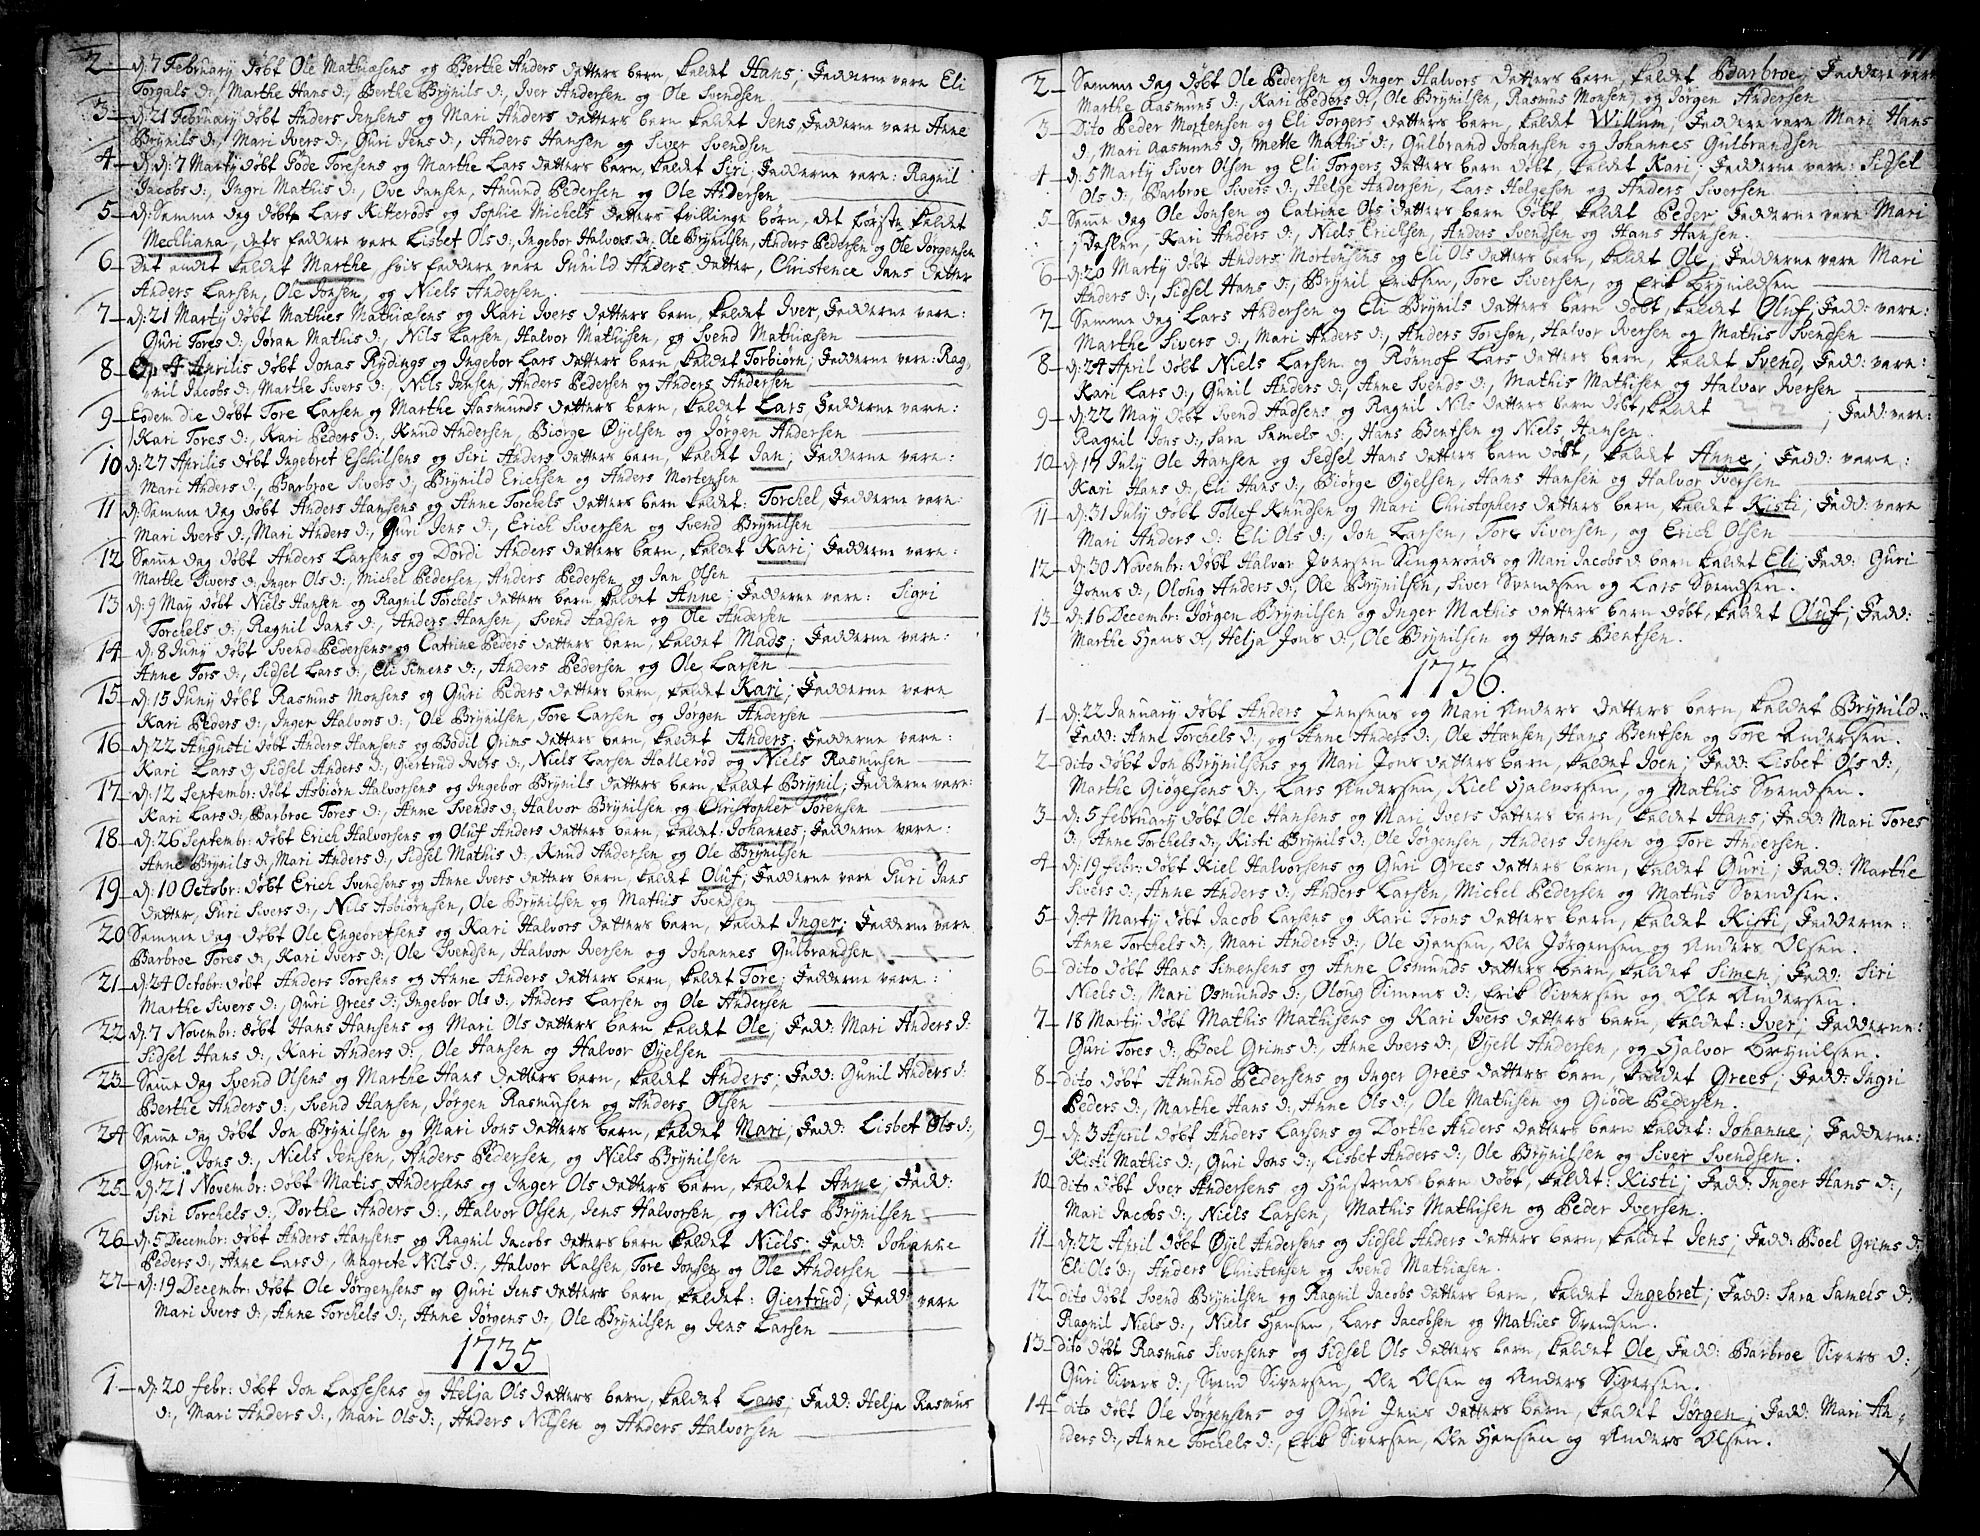 2 d: 7 February døbt Ole Mathiæsens og Berthe Anders datters barn, kaldet Hans; Fadderne vare Eli
Torgals d:, Marthe Hans d:, Berthe Brÿnils d:, Iver Andersen og Ole Svendsen
3 d: 21 February døbt Anders Jensens og Mari Anders datters barn kaldet Jens, Fadderne vare Anne
Brÿnils d:, Mari Ivers d:, Guri Jens d:, Anders Hansen og Siver Svendsen
4 d: 7 Marty døbt Göde Toresens og Marthe Lars datters barn, kaldet Siri; Fadderne vare: Ragnil
Jacobs d:, Ingri Mathis d:, Ove Jansen, Amund Pedersen og Ole Andersen
5 d: Samme dag døbt Lars Kitterøds og Sophie Michels datters tvillinge børn, det første kaldet
Mechliana, dets faddere vare Lisbet Ols d:, Ingebor Halvors d:, Ole Brÿnilsen, Anders Pedersen og Ole Jørgensen
6 Det andet kaldet Marthe, hvis faddere vare Gunild Anders datter, Christence Jans datter
Anders Larsen, Ole Jonsen, og Niels Andersen
7 d: 21 Marty døbt Mathies Mathiæsens og Kari Ivers datters barn, kaldet Iver, Fadderne vare:
Guri Tores d:, Jøran Mathis d:, Nils Larsen, Halvor Mathisen, og Svend Mathiæsen
8 4 Aprilis døbt Jonas Rydings og Ingebor Lars datters barn kaldet Torbiørn; Fadderne vare: Rag-
nil Jacobs d:, Marthe Sivers d:, Nils Jensen, Anders Pedersen og Anders Andersen
9 Eodem die døbt Tore Larsen og Marthe Aasmunds datters barn, kaldet Lars, Fadderne vare:
Kari Tores d:, Kari Peders d:, Knud Andersen, Biørge Øÿelsen og Jørgen Andersen
10 d: 27 Aprilis døbt Ingebret Eschilsens og Siri Anders datters barn, kaldet Jan; Fadderne vare:
Mari Anders d:, Barbroe Sivers d:, Brÿnild Erichsen og Anders Mortensen
11 d: Samme dag døbt Anders Hansens og Anne Torchels datters barn kaldet: Torchel, Fadderne vare:
Mari Ivers d:, Mari Anders d:, Guri Jens d:, Erich Siversen og Svend Brÿnilsen
12 Samme dag døbt Anders Larsens og Dordi Anders datters barn, kaldet Kari; Fadderne vare:
Marthe Sivers d:, Inger Ols d:, Michel Pedersen, Anders Pedersen og Jan Olsen
13 d: 9 May døbt Niels Hansen og Ragnil Torchels datters barn kaldet Anne; Fadderne vare: Sigri
Torchels d:, Ragnil Jans d:, Anders Hansen, Svend Aadsen og Ole Andersen
14 d: 8 Juny døbt Svend Pedersens og Catrine Peders datters barn, kaldet Mads; Fadderne vare:
Anne Tors d:, Sidsel Lars d:, Eli Simens d:, Anders Pedersen og Ole Larsen
15 d: 15 Juny døbt Rasmus Monsens og Guri Peders datters barn, kaldet Kari; Fadderne vare
Kari Peders d:, Inger Halvors d:, Ole Brÿnilsen, Tore Larsen og Jørgen Andersen
16 d: 22 Augusti døbt Anders Hansens og Bodil Grims datters barn, kaldet Anders; Fadderne vare:
Kari Lars d; Sidsel Anders d:, Giertrud Ivers d:, Niels Larsen Hallerød og Niels Rasmusen
17 d: 12 Septembr: døbt Asbiørn Halvorsens og Ingebor Brÿnils datters barn, kaldet Brÿnil; Fadderne vare:
Kari Lars d:, Barbroe Tores d:, Anne Svends d:, Halvor Brÿnilsen og Christopher Torensen
18 d: 26 Septembr: døbt Erich Halvorsens og Oluf Anders datters barn, kaldet: Johannes; Fadderne vare:
Anne Brÿnils d:, Mari Anders d:, Sidsel Mathis d:, Knud Andersen og Ole Brÿnilsen
19 d: 10 Octobr: døbt Erich Svendsens og Anne Ivers datters barn, kaldet Oluf; Fadderne vare Guri Jans
datter, Guri Sivers d:, Nils Asbiørnsen, Ole Brÿnilsen og Mathis Svendsen
20 Samme dag døbt Ole Engebretsens og Kari Halvors datters barn, kaldet Inger; Fadderne vare
Barbroe Tores d:, Kari Ivers d:, Ole Svendsen, Halvor Iversen og Johannes Gulbrandsen
21 d: 24 Octobr: døbt Anders Toresens og Anne Anders datters barn, kaldet Tore; Fadderne vare:
Marthe Sivers d:, Guri Grees d:, Ingebor Ols d:, Anders Larsen og Ole Andersen
22 d: 7 Novembr: døbt Hans Hansens og Mari Ols datters barn kaldet Ole; Fadd: Mari Anders d:
Sidsel Hans d:, Kari Anders d:, Ole Hansen og Halvor Øÿelsen
23 Samme dag Svend Olsens og Marthe Hans datters barn, kaldet Anders; Fadd: Gunil Anders d:
Berthe Anders d:, Svend Hansen, Jørgen Rasmusen og Anders Olsen
24 Samme dag døbt Jon Brÿnilsen og Mari Jons datters barn, kaldet Mari; Fadd: Lisbet Ols d:,
Guri Jons d:, Niels Jensen, Anders Pedersen, og Niels Brÿnilsen
25 d: 21 Novembr: døbt Matis Andersens og Inger Ols datters barn, kaldet Anne; Fadd:
Siri Torchels d:, Dorthe Anders d:, Halvor Olsen, Jens Halvorsen, og Niels Brÿnilsen
26 d: 5 Decembr: døbt Anders Hansens og Ragnil Jacobs datters barn kaldet Niels; Fadd: Johanne
Peders d:, Anne Lars d:, Magrete Nils d:, Halvor Kalsen, Tore Jonsen og Ole Andersen
27 d: 19 Decembr: døbt Ole Jørgensens og Guri Jens datters barn, kaldet: Giertrud; Fadd: vare
Mari Ivers d:, Anne Torchels d:, Anne Jørgens d:, Ole Brÿnilsen og Jens Larsen
1735
1 d: 20 Febr: døbt Jon Lassesens og Helja Ols datters barn, kaldet Lars; Fadd: Helja Rasmus
d:, Mari Anders d:, Mari Ols d:, Anders Nilsen og Anders Halvorsen
2 Samme dag døbt Ole Pedersen og Inger Halvors datters barn, kaldet Barbroe; Faddere vare
Marthe Aasmuns d:, Kari Peders d:, Ole Brÿnilsen, Rasmus Monsen og Jørgen Andersen
3 Dito Peder Mortensen og Eli Torgers datters barn, kaldet Willum; Fadderne vare Mari Hans
d, Mari Aasmuns d, Mette Mathis d:, Gulbrand Johansen og Johannes Gulbrandsen
4 d: 5 Marty Siver Olsen og Eli Torgers datters barn døbt, kaldet Kari; Fadderne vare: Sidsel
Ols d:, Barbroe Sivers d:, Helge Andersen, Lars Helgesen og Anders Siversen
5 Samme dag Ole Jonsen og Catrine Ols datters barn døbt, kaldet Peder; Fadderne vare: Mari
Kari Anders d:, Niels Ericksen, Anders Svendsen og Hans Hansen.
6 d: 20 Marty døbt Anders Mortensens og Eli Ols datters barn, kaldet Ole; Fadderne vare Mari
Anders d:, Sidsel Hans d:, Brÿnil Eriksen, Tore Siversen, og Erik Brÿnildsen
7 Samme dag Lars Andersen og Eli Brÿnils datters barn døbt, kaldet Oluf, Fadd: vare:
Marthe Sivers d:, Mari Anders d:, Anders Toresen, Halvor Iversen og Mathis Svendsen
8 d: 24 April døbt Niels Larsen og Rønof Lars datters barn, kaldet Svend; Fadd: vare:
Kari Lars d:, Gunil Anders d:, Anne Svends d:, Mathis Mathisen og Halvor Iversen
9 d: 22 May døbt Svend Aadsens og Ragnil Nils datters barn døbt, kaldet ; Fadd: vare:
Ragnil Jons d:, Sara Samels d:, Hans Bentsen og Niels Hansen
10 d: 17 July Ole Hansen og Sedsel Hans datters barn døbt, kaldet Anne; Fadd: vare:
Kari Hans d:, Eli Hans d:, Biørge Øÿelsen, Hans Hansen og Halvor Iversen
11 d: 31 July døbt Tollef Knudsen og Mari Christophers datters barn, kaldet Kisti; Fadd: vare
Mari Anders d: Eli Ols d:, Jon Larsen, Tore Siversen, og Erich Olsen
12 d: 30 Novembr: døbt Halvor Iversen Singerøds og Mari Jacobs d barn kaldet Eli; Fadd: Guri
Jonns d:, Olong Anders d:, Ole Brÿnilsen, Siver Svendsen og Lars Svendsen.
13 d: 16 Decembr: Jørgen Brÿnilsen og Inger Mathis datters barn døbt, kaldet Oluf; Fadd:
Marthe Hans d:, Helja Jons d:, Ole Brÿnilsen og Hans Bentsen.
1736.
1 d: 22 January døbt Anders Jensens og Mari Anders datters barn, kaldet Brÿnild
Fadd: Anne Torchels d:, og Anne Anders d:, Ole Hansen, Hans Bentsen og Tore Andersen.
2 dito døbt Jon Brÿnilsens og Mari Jons datters barn, kaldet Joen; Fadd: Lisbet Ols d:,
Marthe Giøgesens d:, Lars Andersen, Kiel Hjalvorsen, og Mathis Svendsen.
3 d: 5 February døbt Ole Hansens og Mari Ivers datters barn, kaldet Hans; Fadd: Mari Tores
d:, Anne Torchels d:, Kisti Brÿnils d:, Ole Jørgensen, Anders Jensen og Tore Andersen.
4 d: 19 Febr: døbt Kiel Halvorsens og Guri Grees datters barn, kaldet Guri; Fadd: Marthe
Sivers d:, Anne Anders d:, Anders Larsen, Michel Pedersen og Mathis Svendsen.
5 d: 4 Marty døbt Jacob Larsens og Kari Trons datters barn, kaldet Kisti; Fadderne:
Anne Torchels d:, Mari Anders d:, Ole Hansen, Ole Jørgensen og Anders Olsen.
6 dito døbt Hans Simensens og Anne Osmunds datters barn, kaldet Simen; Fadd: Siri
Niels d:, Mari Osmunds d:, Olong Simens d:, Erik Siversen og Ole Andersen.
7 18 Marty døbt Mathis Mathisens og Kari Ivers datters barn, kaldet: Iver; Fadderne:
Guri Tores d:, Boel Grims d:, Anne Ivers d:, Øÿell Andersen, og Hjalvor Brÿnilsen.
8 dito døbt Amund Pedersens og Inger Grees datters barn, kaldet Grees; Fadd: Ingri
Peders d:, Marthe Hans d:, Anne Ols d:, Ole Mathisen og Giøde Pedersen.
9 d: 3 April døbt Anders Larsens og Dorthe Anders datters barn kaldet: Johanne; Fadderne:
Kisti Mathis d:, Guri Jons d:, Lisbet Anders d:, Ole Brÿnilsen og Siver Svendsen.
10 dito døbt Iver Andersens og Hustrues barn døbt, kaldet: Kisti; Fadd: Inger Hans d:,
Mari Jacobs d:, Niels Larsen, Mathis Mathisen og Peder Iversen.
11 d: 22 April døbt Øÿel Andersens og Sidsel Anders datters barn, kaldet Jens; Fadd: Boel Grims d:
Eli Ols d:, Anders Christensen og Svend Mathiæsen.
12 dito døbt Svend Brÿnilsen og Ragnil Jacobs datters barn, kaldet Ingebret; Fadd: Sara Samels d:
Ragnil Niels d:, Niels Hansen, Lars Jacobsen og Mathies Svendsen.
13 dito døbt Rasmus Siversens og Sidsel Ols datters barn, kaldet Ole, Fadd: Barbroe Sivers d:,
Guri Sivers d:, Svend Siversen, Ole Olsen og Anders Siversen.
14 dito døbt Ole Jørgensens og Guri Jens datters barn, kaldet Jørgen; Fadd: Mari An-
ders d:, Anne Torchels d:, Erik Siversen, Ole Hansen og Anders Olsen.